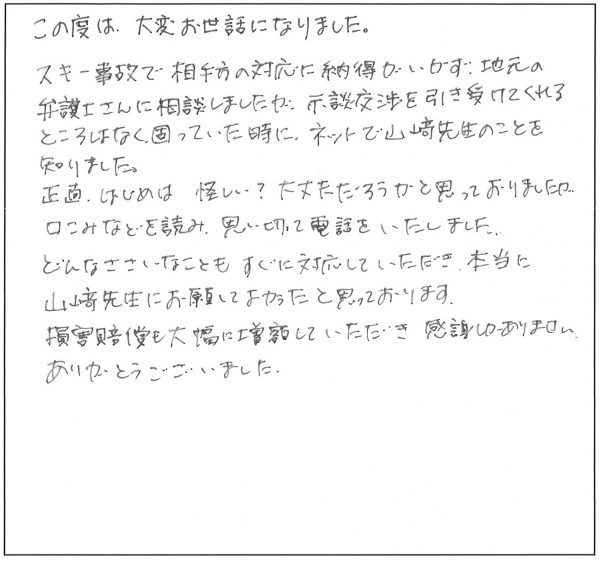 この度は、大変お世話になりました。
スキー事故で相手方の対応に納得がいかず、地元の
弁護士さんに相談しましたが、示談交渉を引き受けてくれる
ところはなく、困っていた時に、ネットで山﨑先生のことを
知りました。
正直、はじめは 怪しい？大丈夫だろうかと思っておりましたが、
口こみなどを読み、思い切って電話をいたしました。
どんなささいなことも すぐに対応していただき、本当に
山﨑先生にお願してよかったと思っております。
損害賠償も大幅に増額していただき 感謝しかありません。
ありがとうございました。